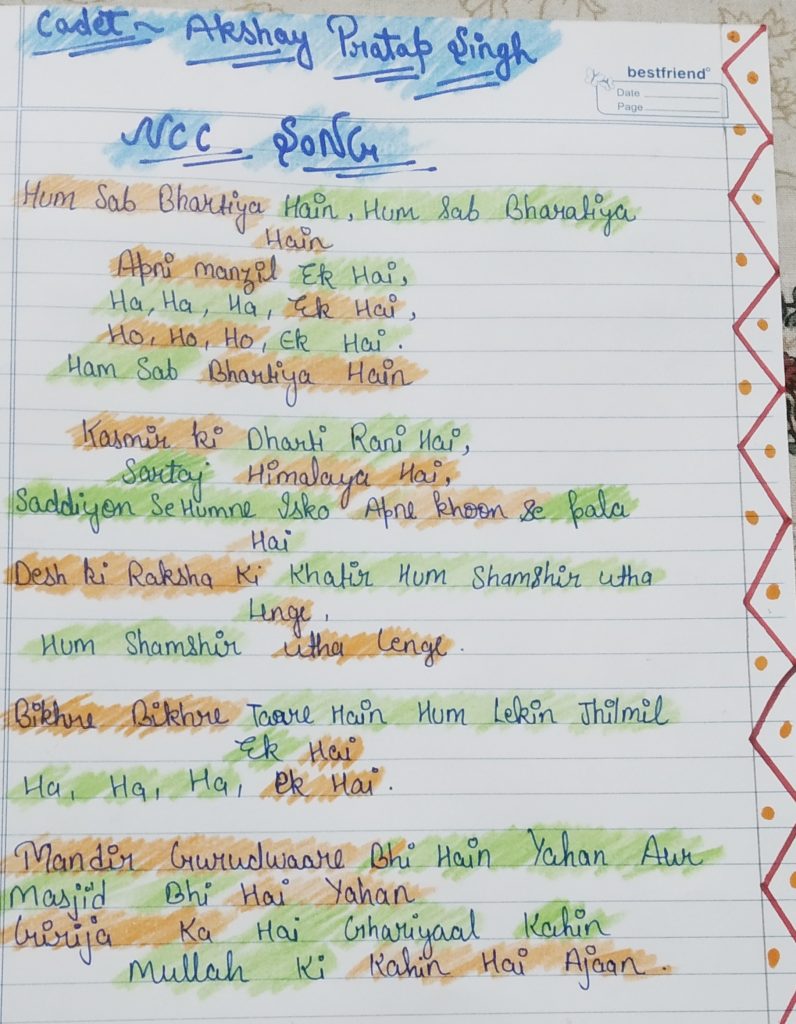 Cadet ~ Akshay Pratap Singh
bestfriend
Date
Page
NCC SONG
Hum Sab Bhartiya Hain, Hum Sab Bharatiya
Hain
Apni manzil Ek Hai,
Ha, Ha, Ha, Ek Hai,
Ho, Ho, Ho, Ek Hai.
Ham Sab Bhartiya Hain
Kasmir ki Dharti Rani Hai,
Sartaj Himalaya Hai,
Saddiyon Se Humne Isko Apne khoon se pala
Hai
Desh ki Raksha Ki Khatir Hum Shamshir utha
Lenge,
Hum Shamshir utha Lenge.
Bikhre Bikhre Taare Hain Hum Lekin Jhilmil
Ek Hai
Ha, Ha, Ha, Ek Hai.
Mandir Gurudwaare Bhi Hain Yahan Aur
Masjid Bhi Hai Yahan
Girija Ka Hai Ghariyaal Kahin
Mullah Ki Kahin Hai Ajaan.